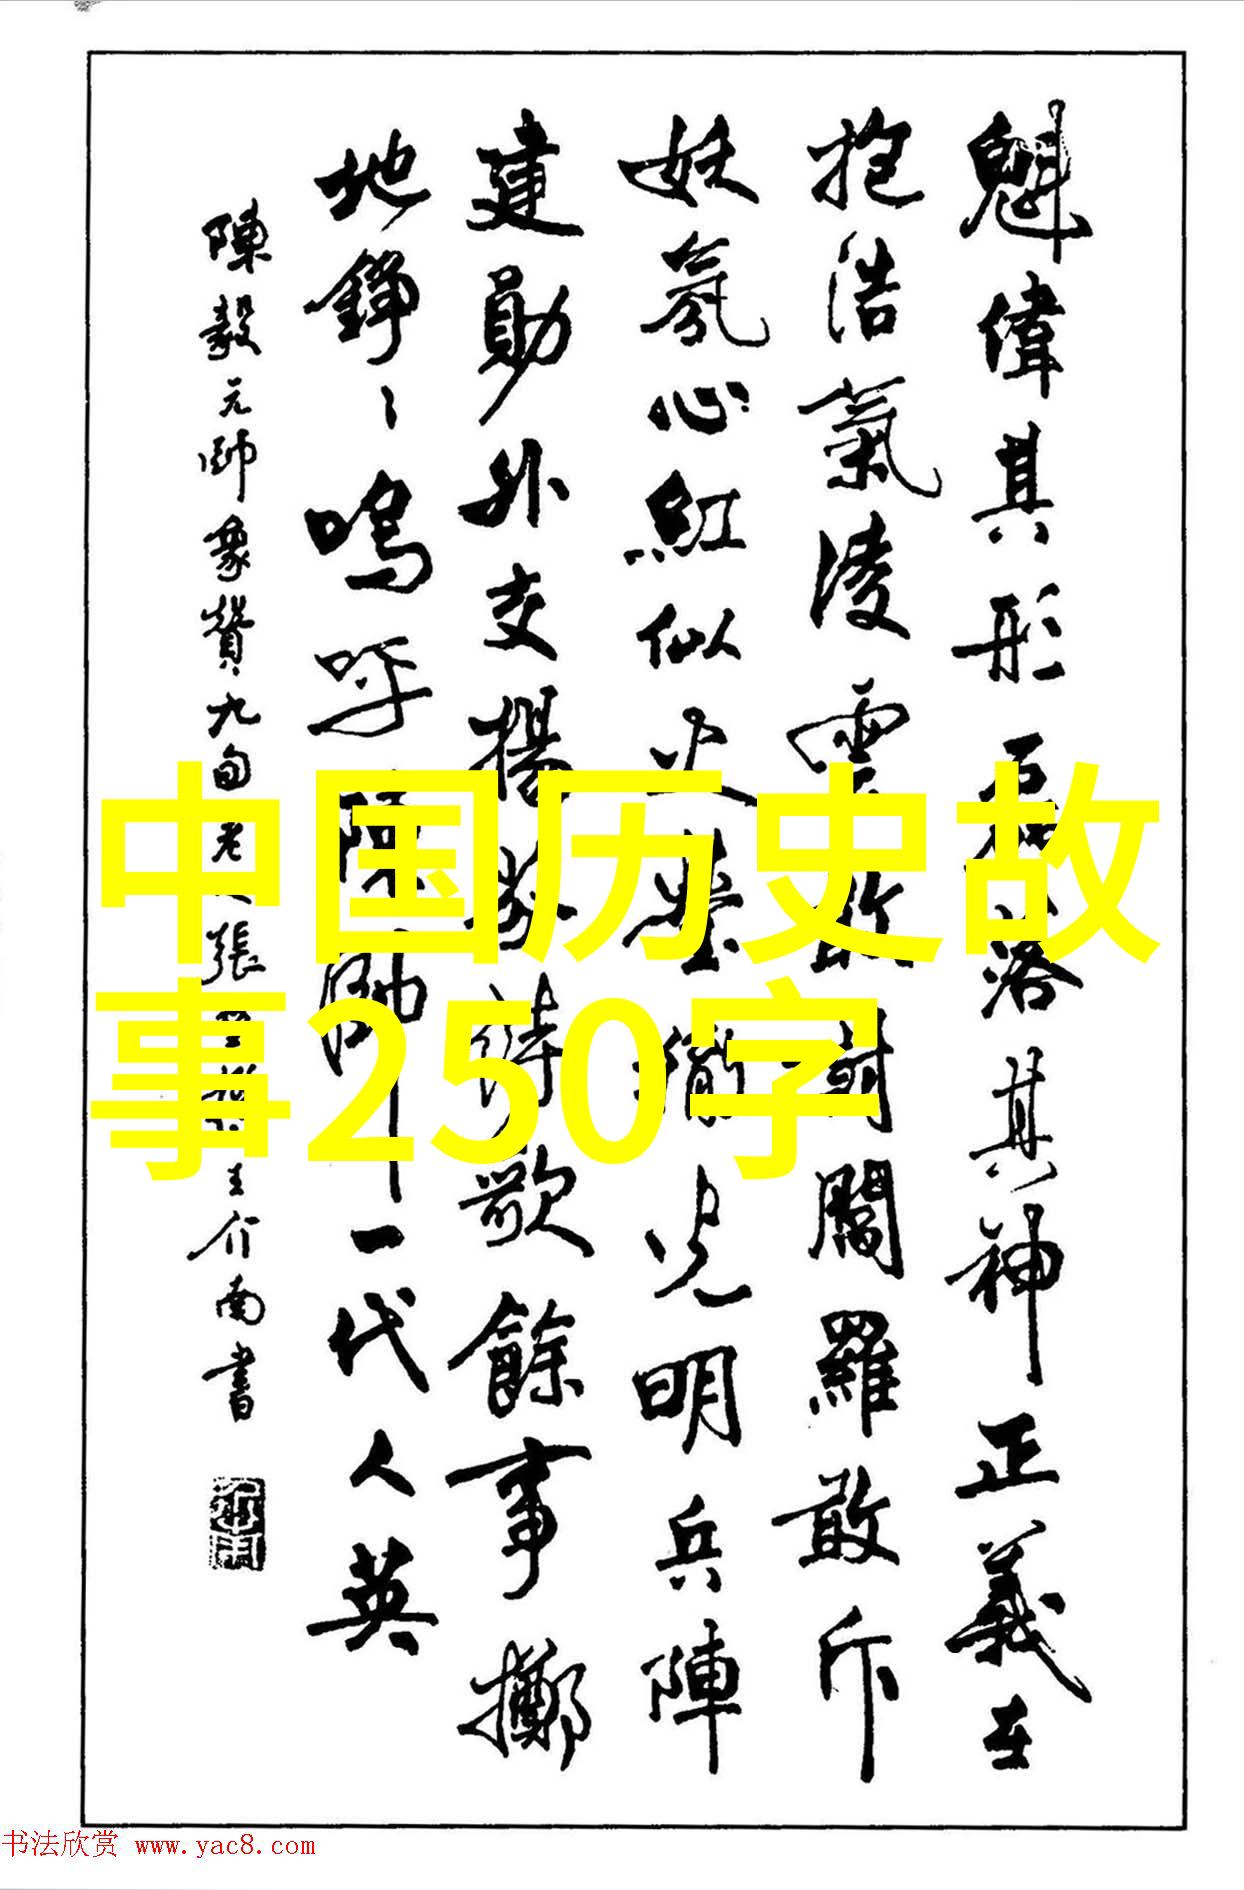 魁偉其形磊落其神正義在
抱浩氣凌雲敢闘閻羅敢斥
妖氛心紅似火瑩徹光明兵陣
建勛外交揚旌詩歌餘事擲
地錚々嗚呼陳帥一代人英
陳毅元帥象贊九旬老人張 王介南書
中国历史故
事250字
书法欣赏 www.yac8.com